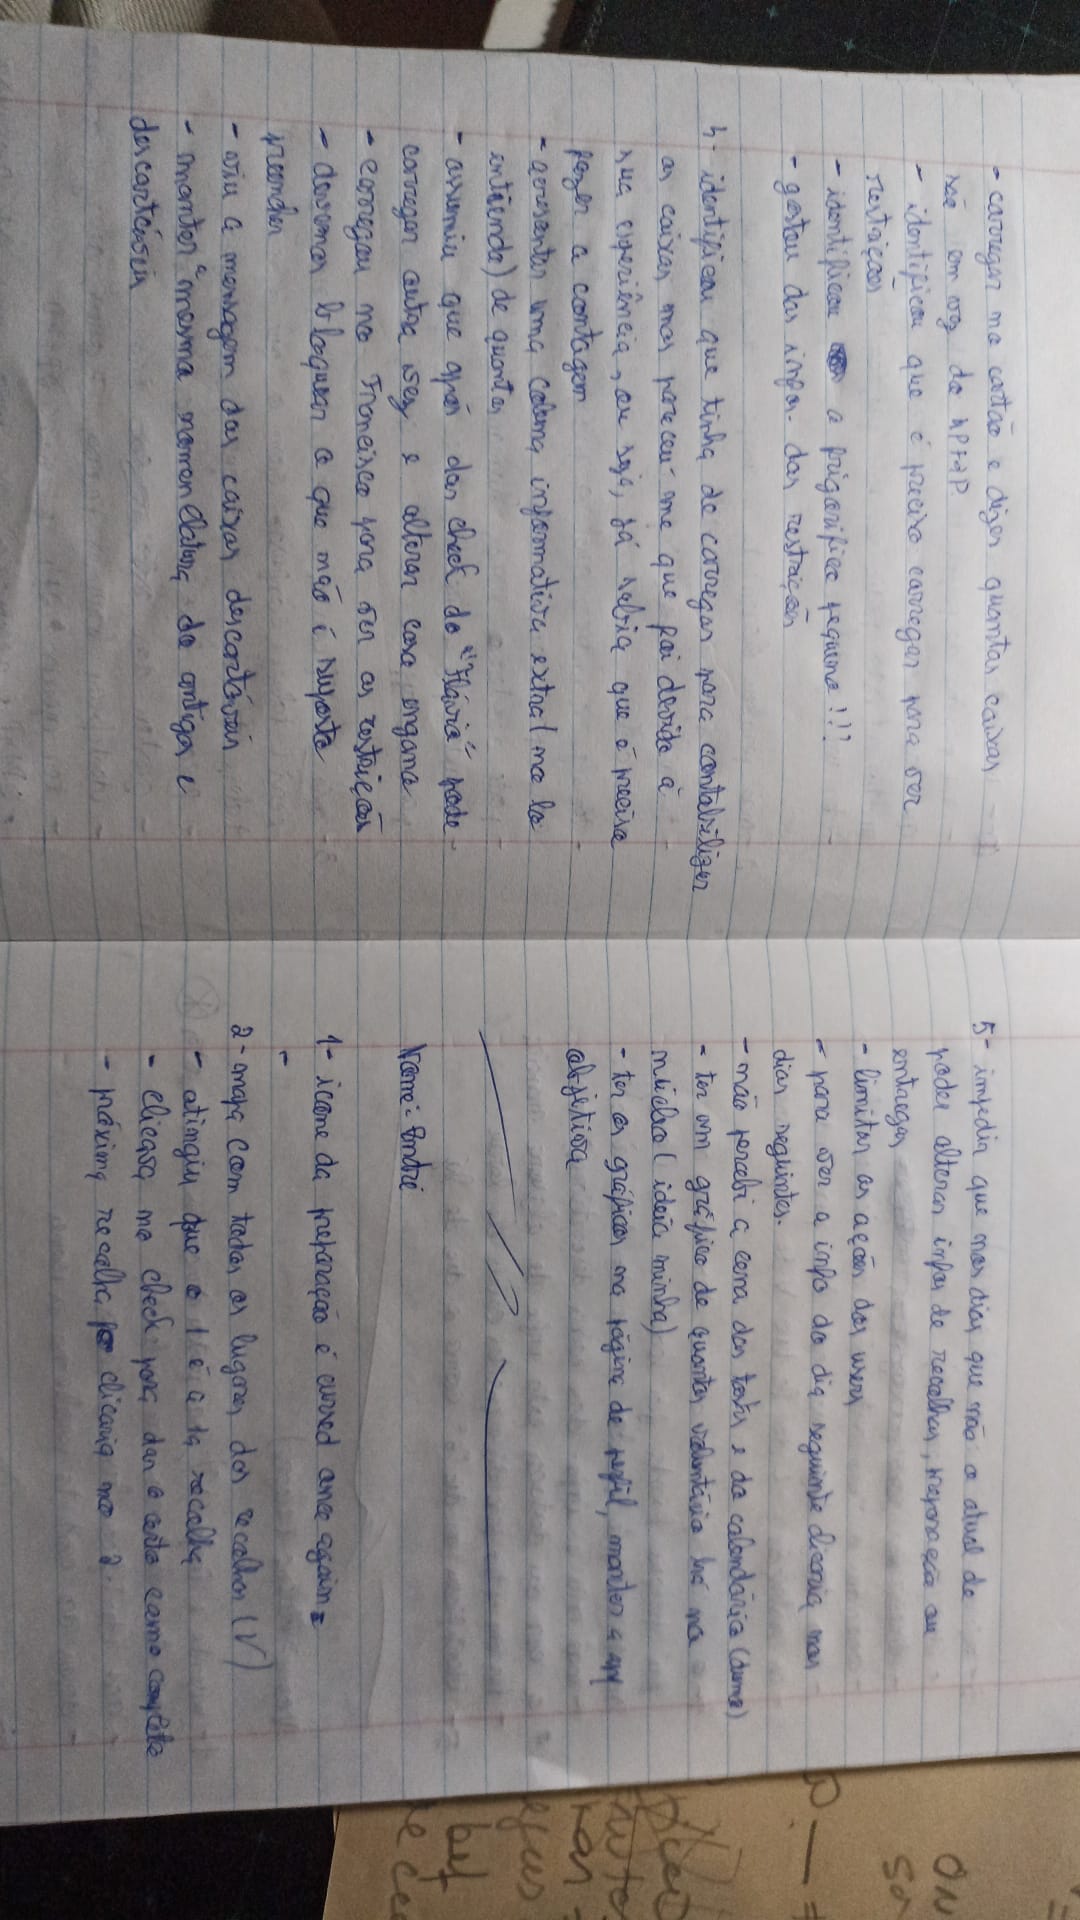 - carregar no cartão e dizer quantas caixas
são em vez de
- identificou que é preciso carregar para ver
restrições
- identificou o frigorífico pequeno!!!
- gostou das infor. das restrições
4- identificou que tinha de carregar para contabilizar
as caixas mas pareceu-me que foi devido à
sua experiência, ou seja, já sabia que é preciso
fazer a contagem
- acrescentar uma coluna informativa extra (no lo
entrienda) de quantas
- assumiu que após dar check do "Flávia" pode
carregar outra vez e alterar caso engano
- carregou no Francisco para ver as restrições
- devemos bloquear o que não é suposto
preencher
- viu a mensagem das caixas descartáveis
- manter a mesma nomenclatura do antiga e
descartáveis
5- impedia que nos dias que não o atual de
poder alterar infos de recolhas, preparação ou
entregas
- limitar as ações dos users
- para ver a info do dia seguinte clicaria nos
dias seguintes.
- não percebi a cena dos tabs e do calendário (dumo)
- ter um gráfico de quantos voluntários há no
núcleo (ideia minha)
- ter os gráficos na página de perfil, manter a app
objetiva
Nome: André
1- icone da preparação é cursed once again
-
2- mapa com todos os lugares das recolhas (V)
- atingiu que o 1 é a 1ª recolha
- clicava no check para dar o certo como completo
- próxima recolha, clicaria no 2.